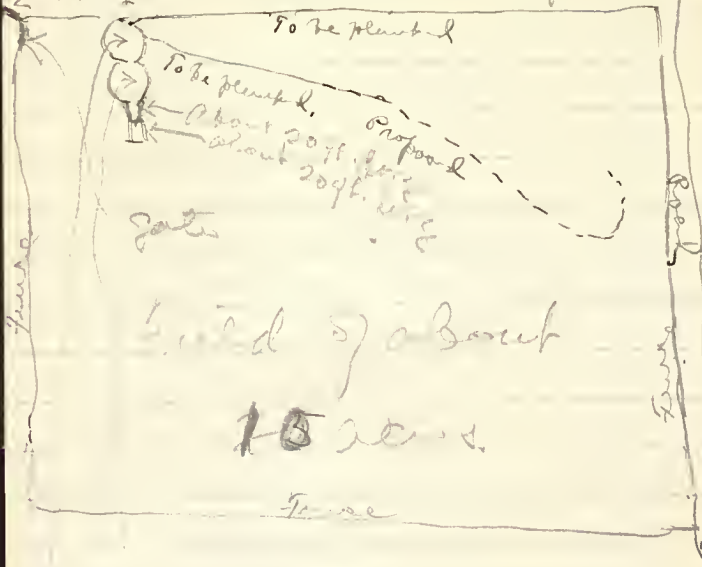 To be planked
To be planked.
Proposed
about 20 ft. long
about 20 ft. wide
Road
gates
Fence
Field of about
15 acres.
Fence
Fence